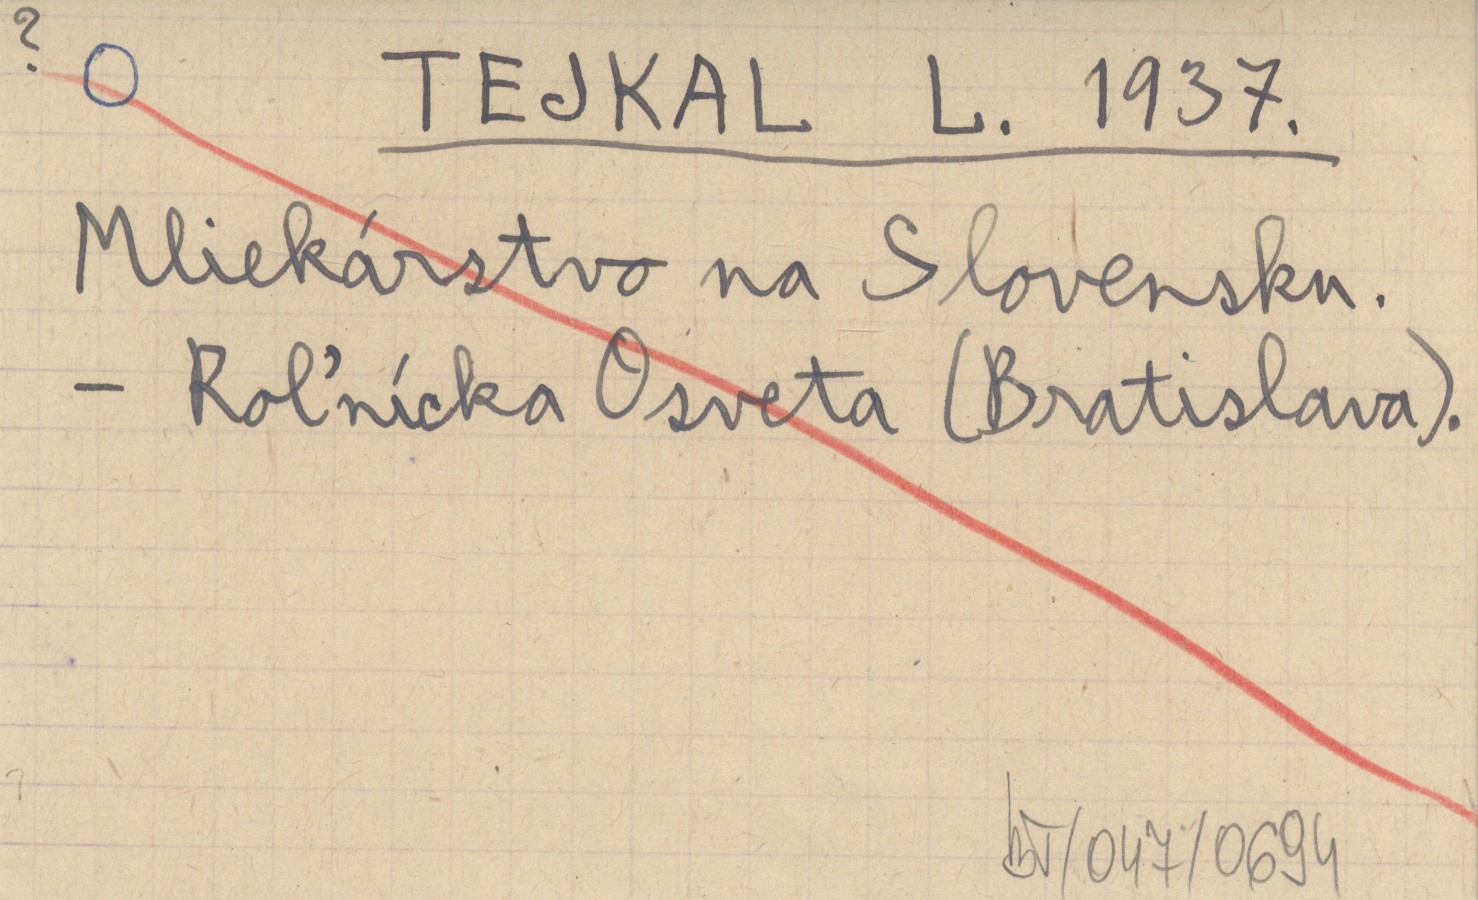 ? O TEJKAL L. 1937.
Mliekárstvo na Slovensku.
- Roľnícka Osveta (Bratislava).
BT/047/0694